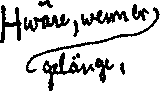 H wäre, wenn er,
gelänge,